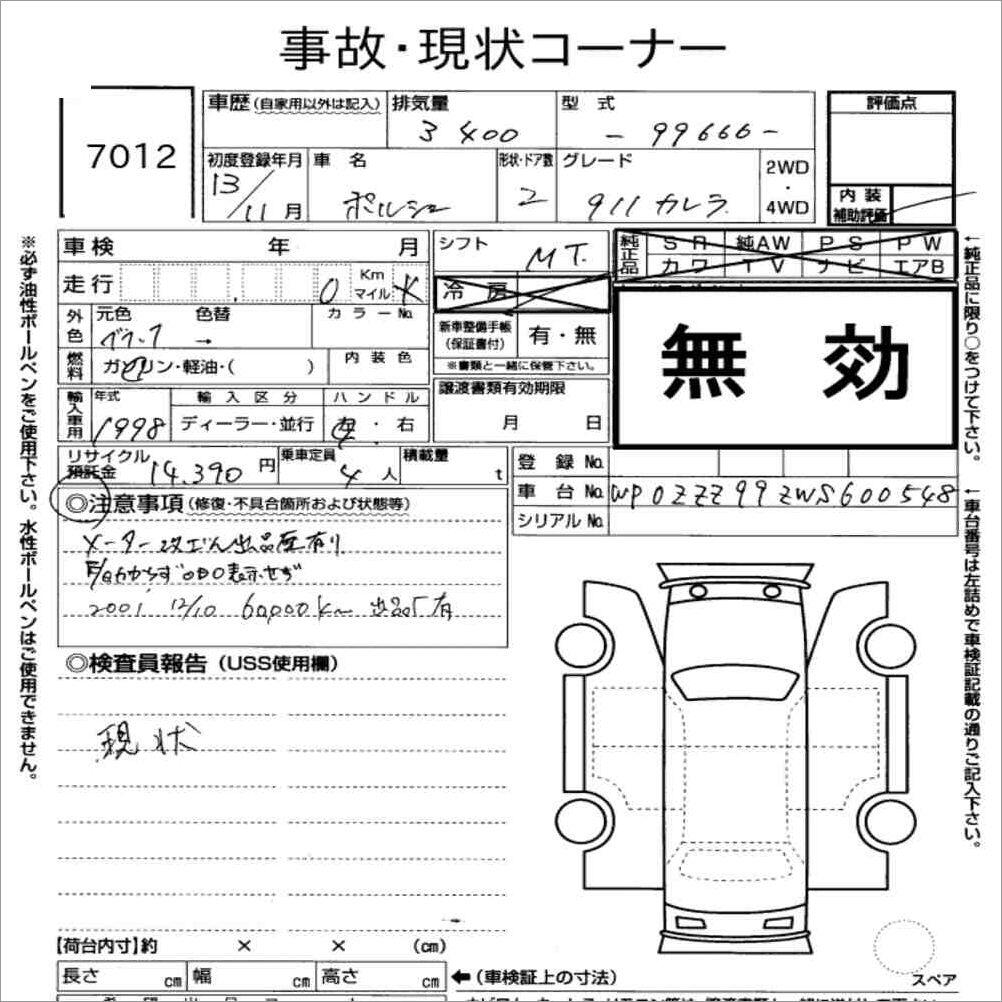 事故・現状コーナー
7012
車歴(自家用以外は記入)
排気量
3400
型式
- 99666 -
評価点
初度登録年月
13/11月
車名
ポルシェ
形状・ドア数
2
グレード
911カレラ
2WD
・
4WD
内装
補助評価
車検 年 月
シフト
MT.
純正品
SR 純AW PS PW
カワ TV ナビ エアB
走行 0 Km マイル
冷房
無効
外色
元色
色替
→
カラーNo.
新車整備手帳
(保証書付)
有・無
※書類と一緒に保管下さい。
燃料
ガソリン・軽油・( )
内装色
譲渡書類有効期限
月 日
輸入車用
年式
1998
輸入区分
ディーラー・並行
ハンドル
左・右
リサイクル
預託金
14,390円
乗車定員
4人
積載量
t
登録No.
車台No.
WP0ZZZ99ZWS600548
シリアルNo.
◎注意事項(修復・不具合箇所および状態等)
2001. 12/10 60,000km
◎検査員報告(USS使用欄)
現状
【荷台内寸】約 × × (cm)
長さ cm 幅 cm 高さ cm
←(車検証上の寸法)
スペア
※必ず油性ボールペンをご使用下さい。水性ボールペンはご使用できません。
←純正品に限り○をつけて下さい。
←車台番号は左詰めで車検証記載の通りご記入下さい。